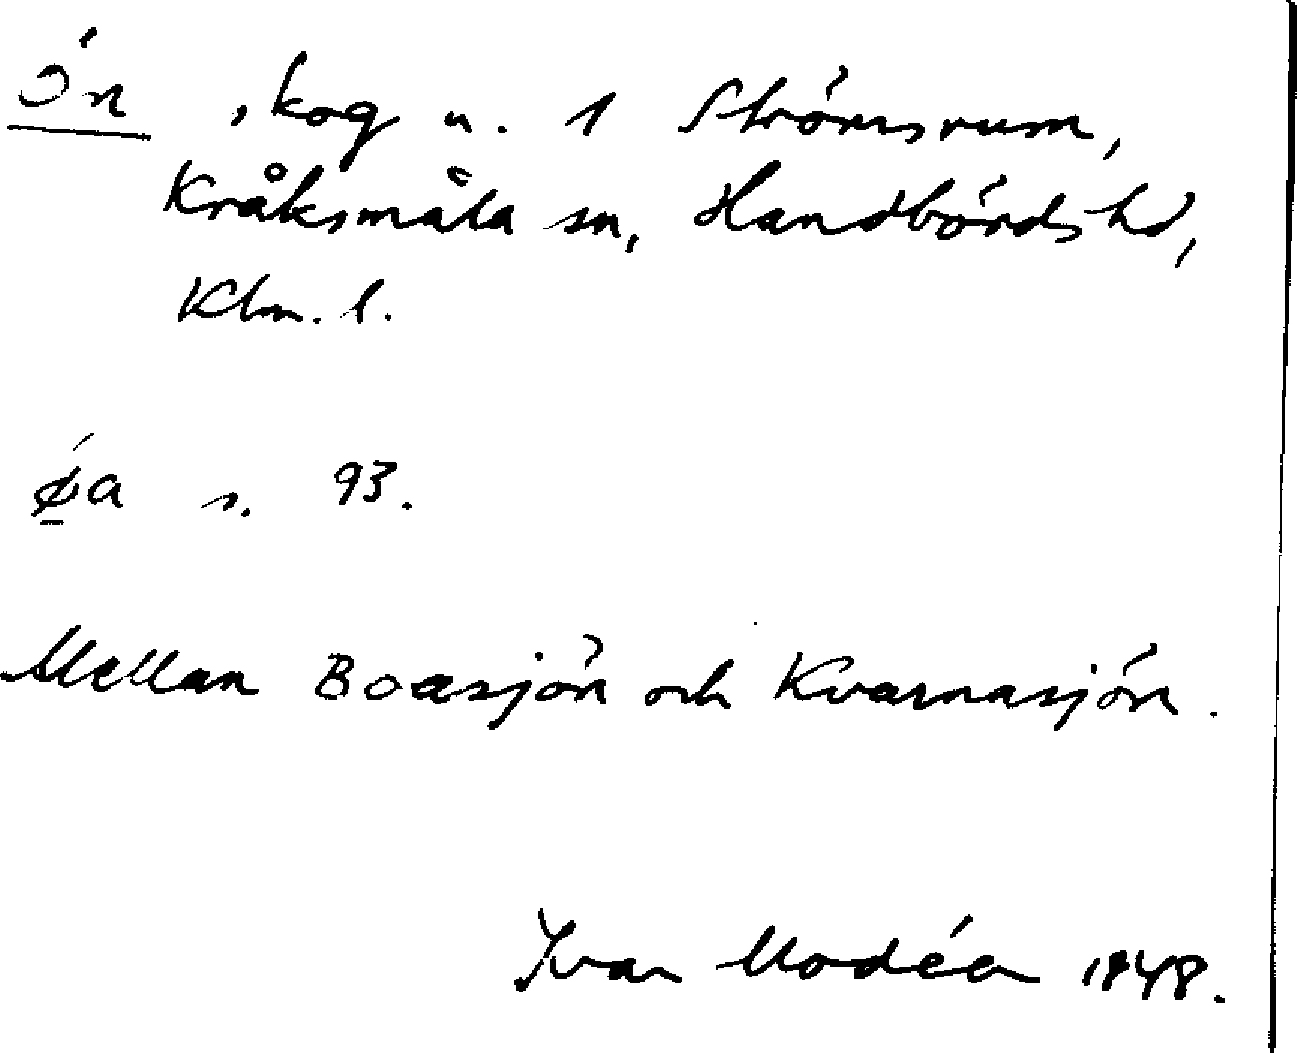 Ön, skog u. 1 Strömsrum,
Kråksmåla sn, Handbörds hd,
Klm. l.
ǿa s. 93.
Mellan Boasjön och Kvarnasjön.
Ivar Modéer 1948.